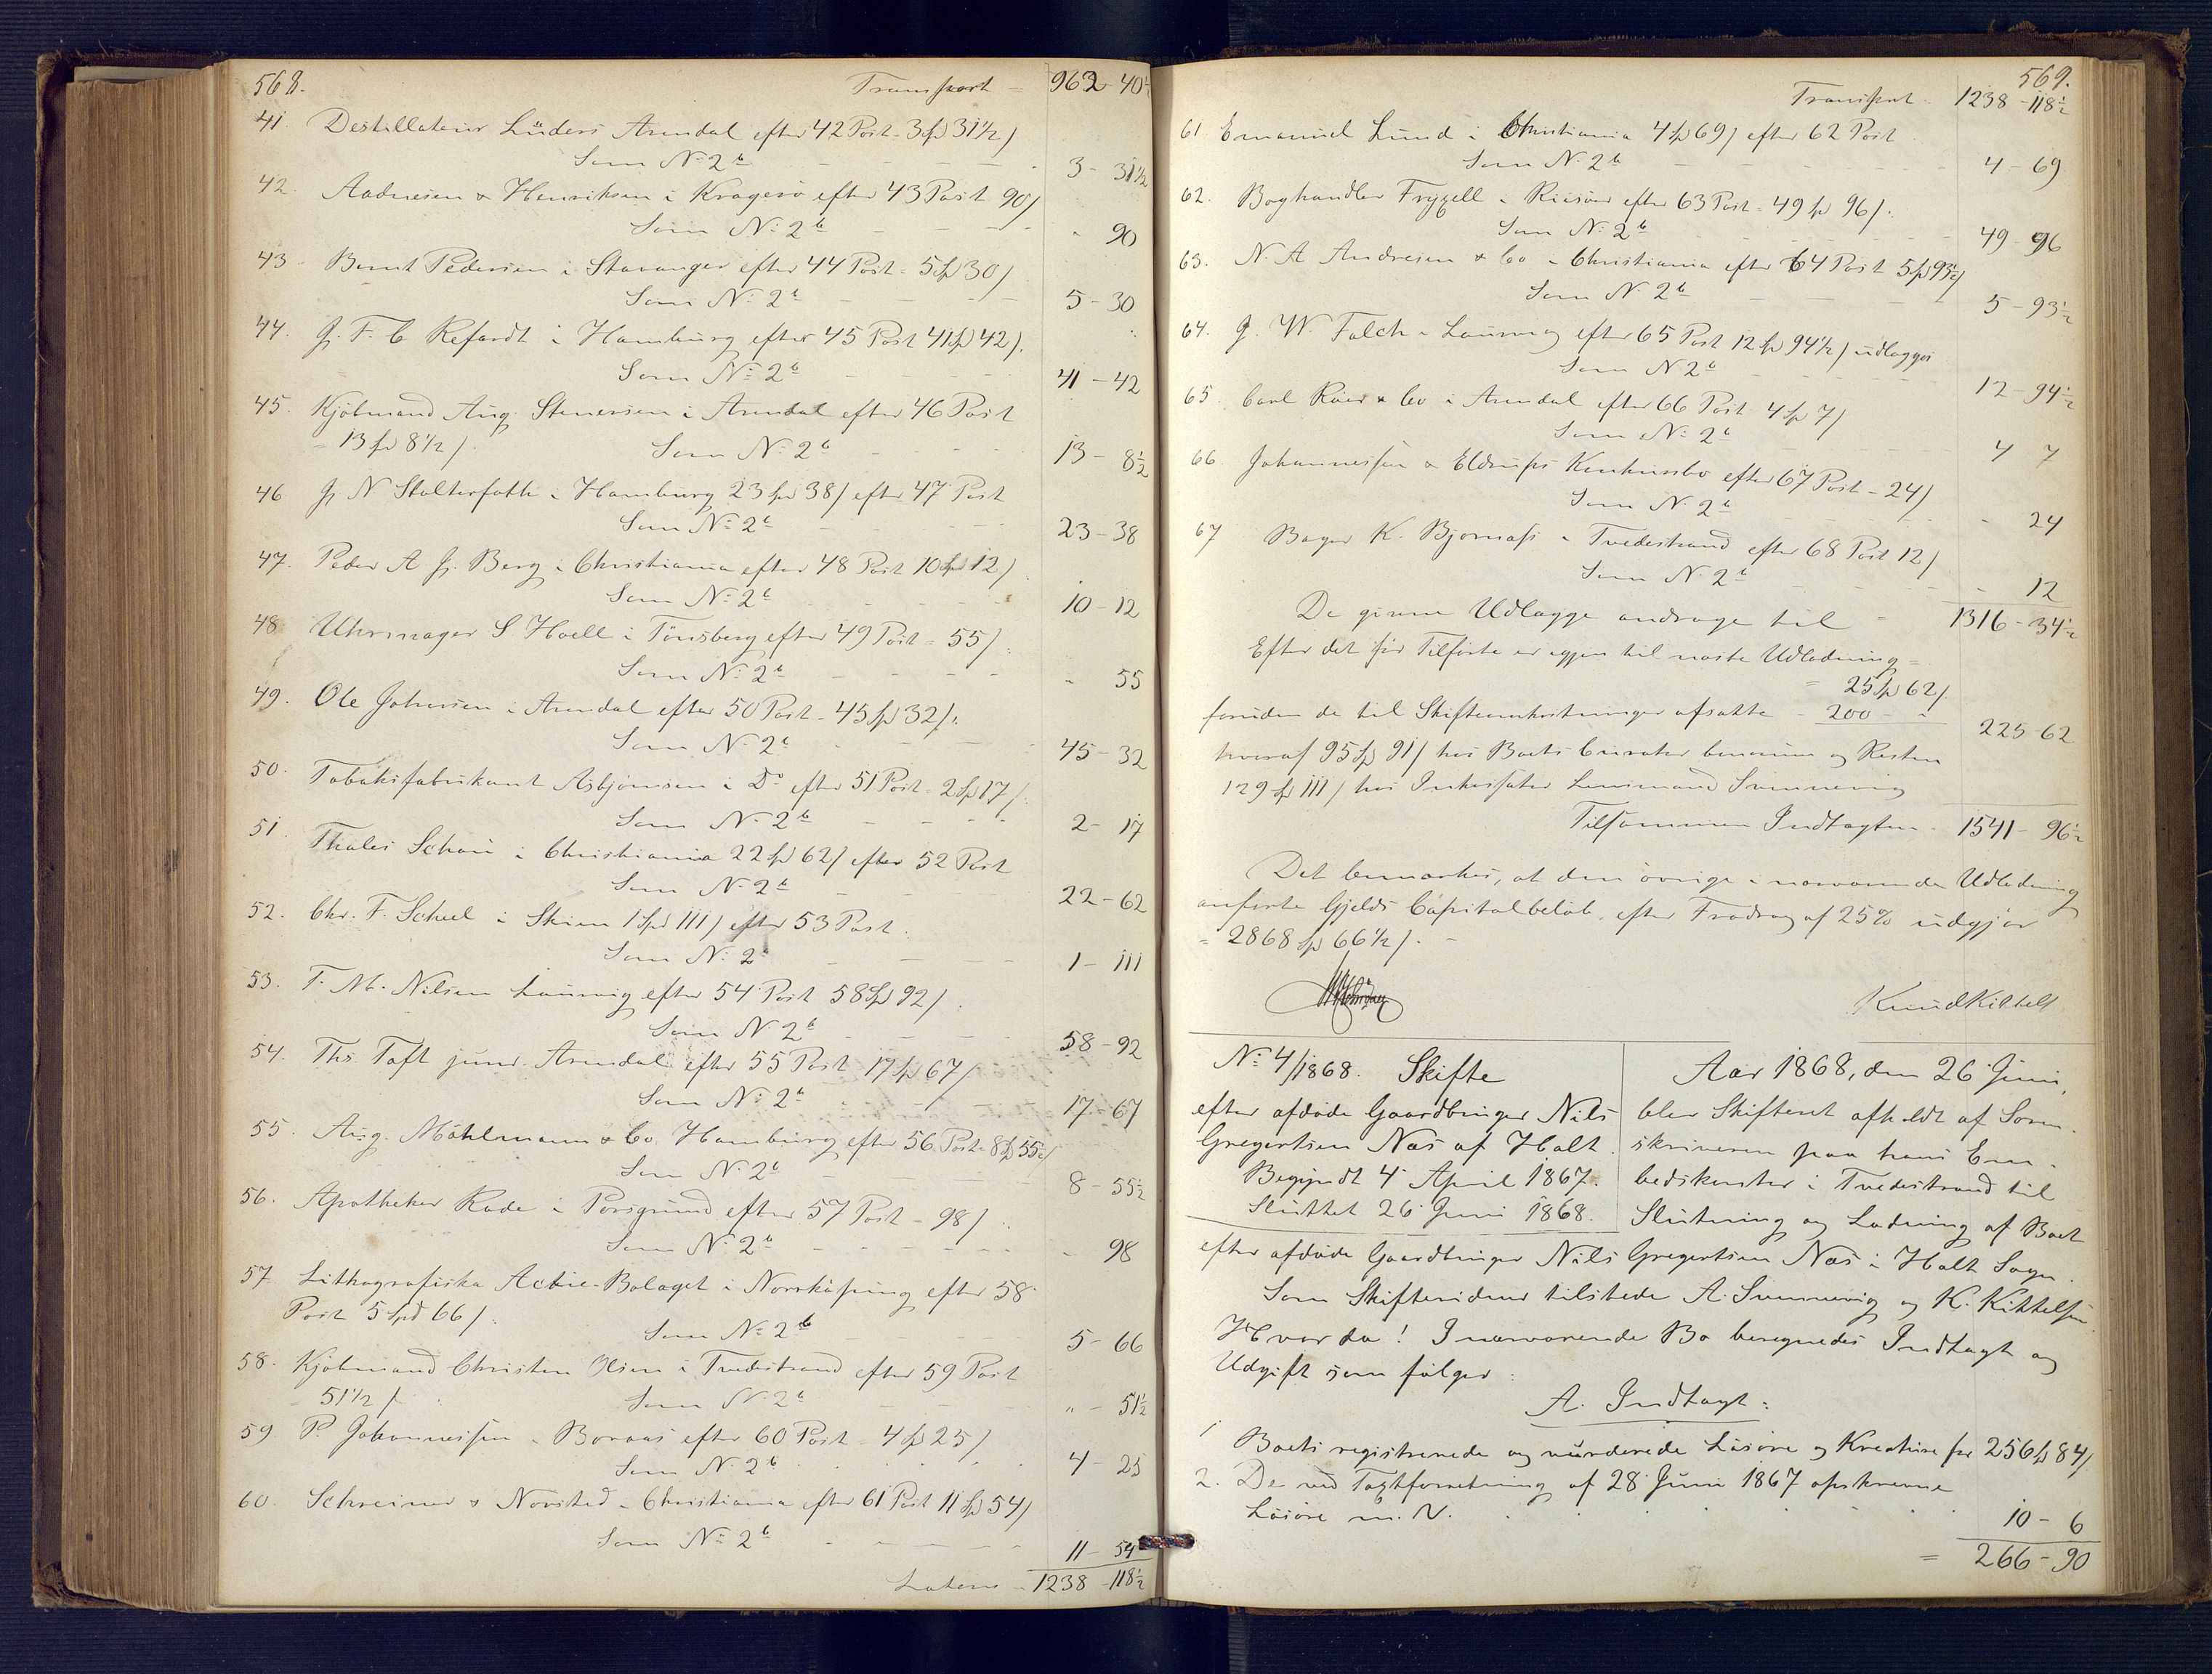 568. Transport = 962-40½
41. Destillateur Lüders Arendal efter 42 Post - 3 spd 31½ /
Som N: 2b - - - - 3 - 31½
42. Aadnesen & Henriksen i Kragerö efter 43 Post 90 /
Som N: 2b - - - - " 90
43. Bernt Pedersen i Stavanger efter 44 Post = 5 spd 30 /
Som N: 2b - - - - 5 - 30
44. J. F. C Refardt i Hamburg efter 45 Post 41 spd 42 /.
Som N: 2b - - - - 41 - 42
45. Kjöbmand Aug. Stenersen i Arendal efter 46 Post
= 13 spd 8½ /. Som N: 2b - - - - 13 - 8½
46 J N Stolterfoth i Hamburg 23 spd 38 / efter 47 Post
Som N: 2b - - - - 23 - 38
47. Peder A J. Berg i Christiania efter 48 Post 10 spd 12 /
Som N: 2b - - - - 10 - 12
48 Uhrmager S Hoell i Tönsberg efter 49 Post = 55 /
Som N: 2b - - - - " 55
49. Ole Johnsen i Arendal efter 50 Post - 45 spd 32 /.
Som N: 2b - - - - 45 - 32
50. Tobaksfabrikant Asbjörnsen i Do efter 51 Post = 2 spd 17 /.
Som N: 2b - - - - 2 - 17
51. Thales Schou i Christiania 22 spd 62 / efter 52 Post
Som N: 2b - - - - 22 - 62
52. Chr: F. Scheel i Skien 1 spd 111 / efter 53 Post.
Som N: 2b - - - - 1 - 111
53. T. M. Nilsen Laurvig efter 54 Post 58 spd 92 /.
Som N: 2b - - - - 58 - 92
54. Ths. Toft junr. Arendal efter 55 Post 17 spd 67 /
Som N: 2b - - - - 17 - 67
55. Aug. Möhlmann & Co Hamburg efter 56 Post = 8 spd 55½ /
Som N: 2b - - - - 8 - 55½
56. Apotheker Rode i Porsgrund efter 57 Post - 98 /.
Som N: 2b - - - - " 98
57 Lithografiska Actie-Bolaget i Norrköping efter 58
Post 5 Spd 66 /. Som N: 2b - - - - 5 - 66
58. Kjöbmand Christen Olsen i Tvedestrand efter 59 Post
51½ / Som N: 2b - - - - " - 51½
59 P. Johannessen - Boraas efter 60 Post = 4 spd 25 /
Som N: 2b - - - - 4 - 25
60. Schreiner & Novsted - Christiania efter 61 Post 11 spd 54 /
Som N: 2b - - - - 11 - 54
Latens - 1238 - 118½
569.
Transport 1238 - 118½
61. Emanuel Lund i Christiania 4 spd 69 / efter 62 Post
Som N: 2b - - - - 4 - 69
62. Boghandler Fryxell i Risöer efter 63 Post = 49 spd 96 /.
Som N: 2b - - - - 49 - 96
63. N. A Andresen & Co - Christiania efter 64 Post 5 spd 93½ /
Som N: 2b - - - - 5 - 93½
64. J. W. Falch - Laurvig efter 65 Post 12 spd 94½ / udlægges
Som N: 2b - - - - 12 - 94½
65. Carl Röer & Co i Arendal efter 66 Post 4 spd 7 /
Som N: 2b - - - - 4 7
66. Johannessen & Eldrups Konkursbo efter 67 Post - 24 /
Som N: 2b - - - - - 24
67 Bager K. Bjornass i Tvedestrand efter 68 Post 12 /
Som N: 2b - - - - - 12
De givne Udlægge andrage til - 1316 - 34½
Efter det för Tilförte er igjen til næste Udlodning =
= 25 spd 62 /
foruden de til Skifteomkostninger afsatte - 200 - " 225 62
hvoraf 95 spd 91 / hos Boets Curator beroende og Resten
129 spd 111 / hos Inkassator Lensmand Svennevig
Tilsammen Indtægten - 1541 - 96½
Det bemærkes, at den övrige i nærværende Udlodning
anførte Gjelds Capitalbelöb, efter Fradrag af 25% udgjör
= 2868 spd 66½ /. -
Knud Kittels
N: 4/1868. Skifte
efter afdöde Gaardbruger Nils
Gregertsen Næs af Holt.
Begyndt 4 April 1867.
Sluttet 26 Juni 1868.
Aar 1868, den 26 Juni,
blev Skifteret afholdt af Soren-
skriveren paa hans Em-
bedskontor i Tvedestrand til
Slutning og Lodning af Boet
efter afdöde Gaardbruger Nils Gregertsen Næs i Holt Sogn.
Som Skiftevidner tilstede A. Svennevig og K. Kittelsen.
Hvorda! I nærværende Bo beregnedes Indtægt og
Udgift som fölger:
A. Indtægt:
1 Boets registrerede og vurderede Lösöre og Kreature for 256 spd 84 /
2. De ved Taxtforretning af 28 Juni 1867 opskrevne
Lösöre m. V. . . . . . 10 - 6
= 266 - 90